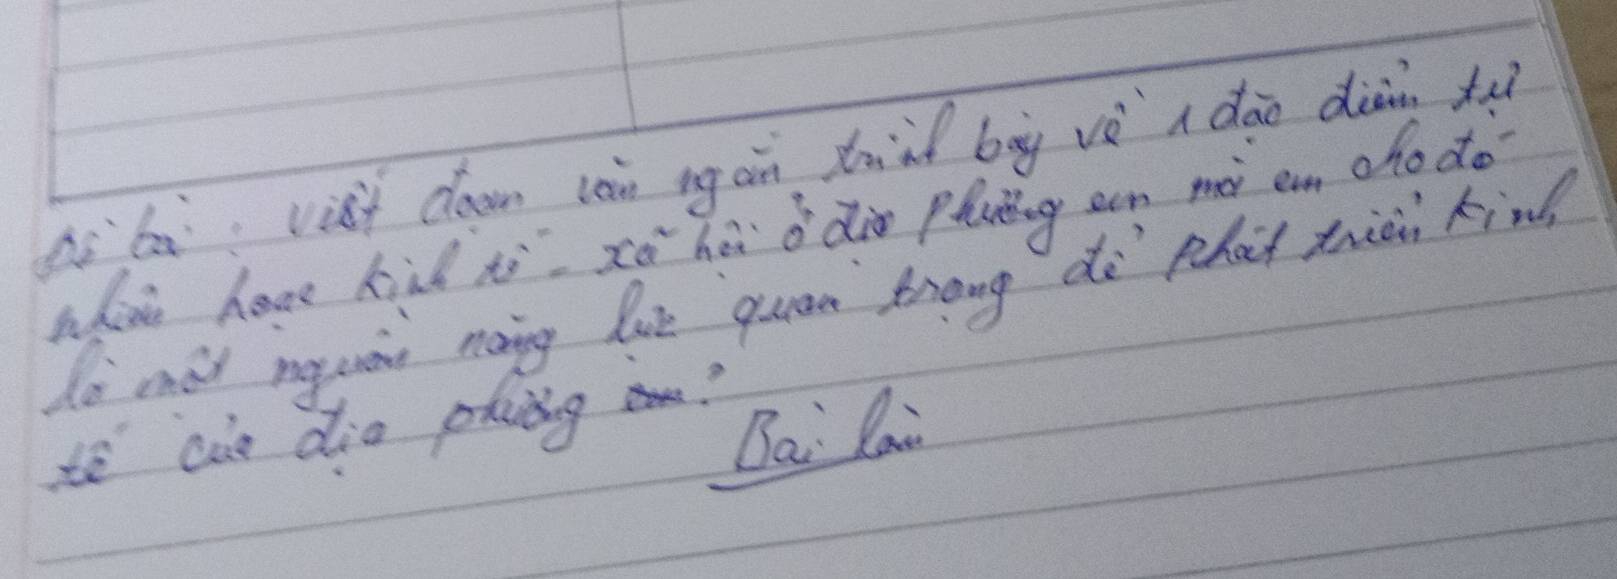 Đề bài: viết đoạn văn ngắn trình bày về 1 đặc điểm tự
nhiên hoặc kinh tế - xã hội ở địa phương em mà em cho đó
là một nguồn năng lực quan trọng để phát triển kinh
tế của địa phương ?
Bài làm